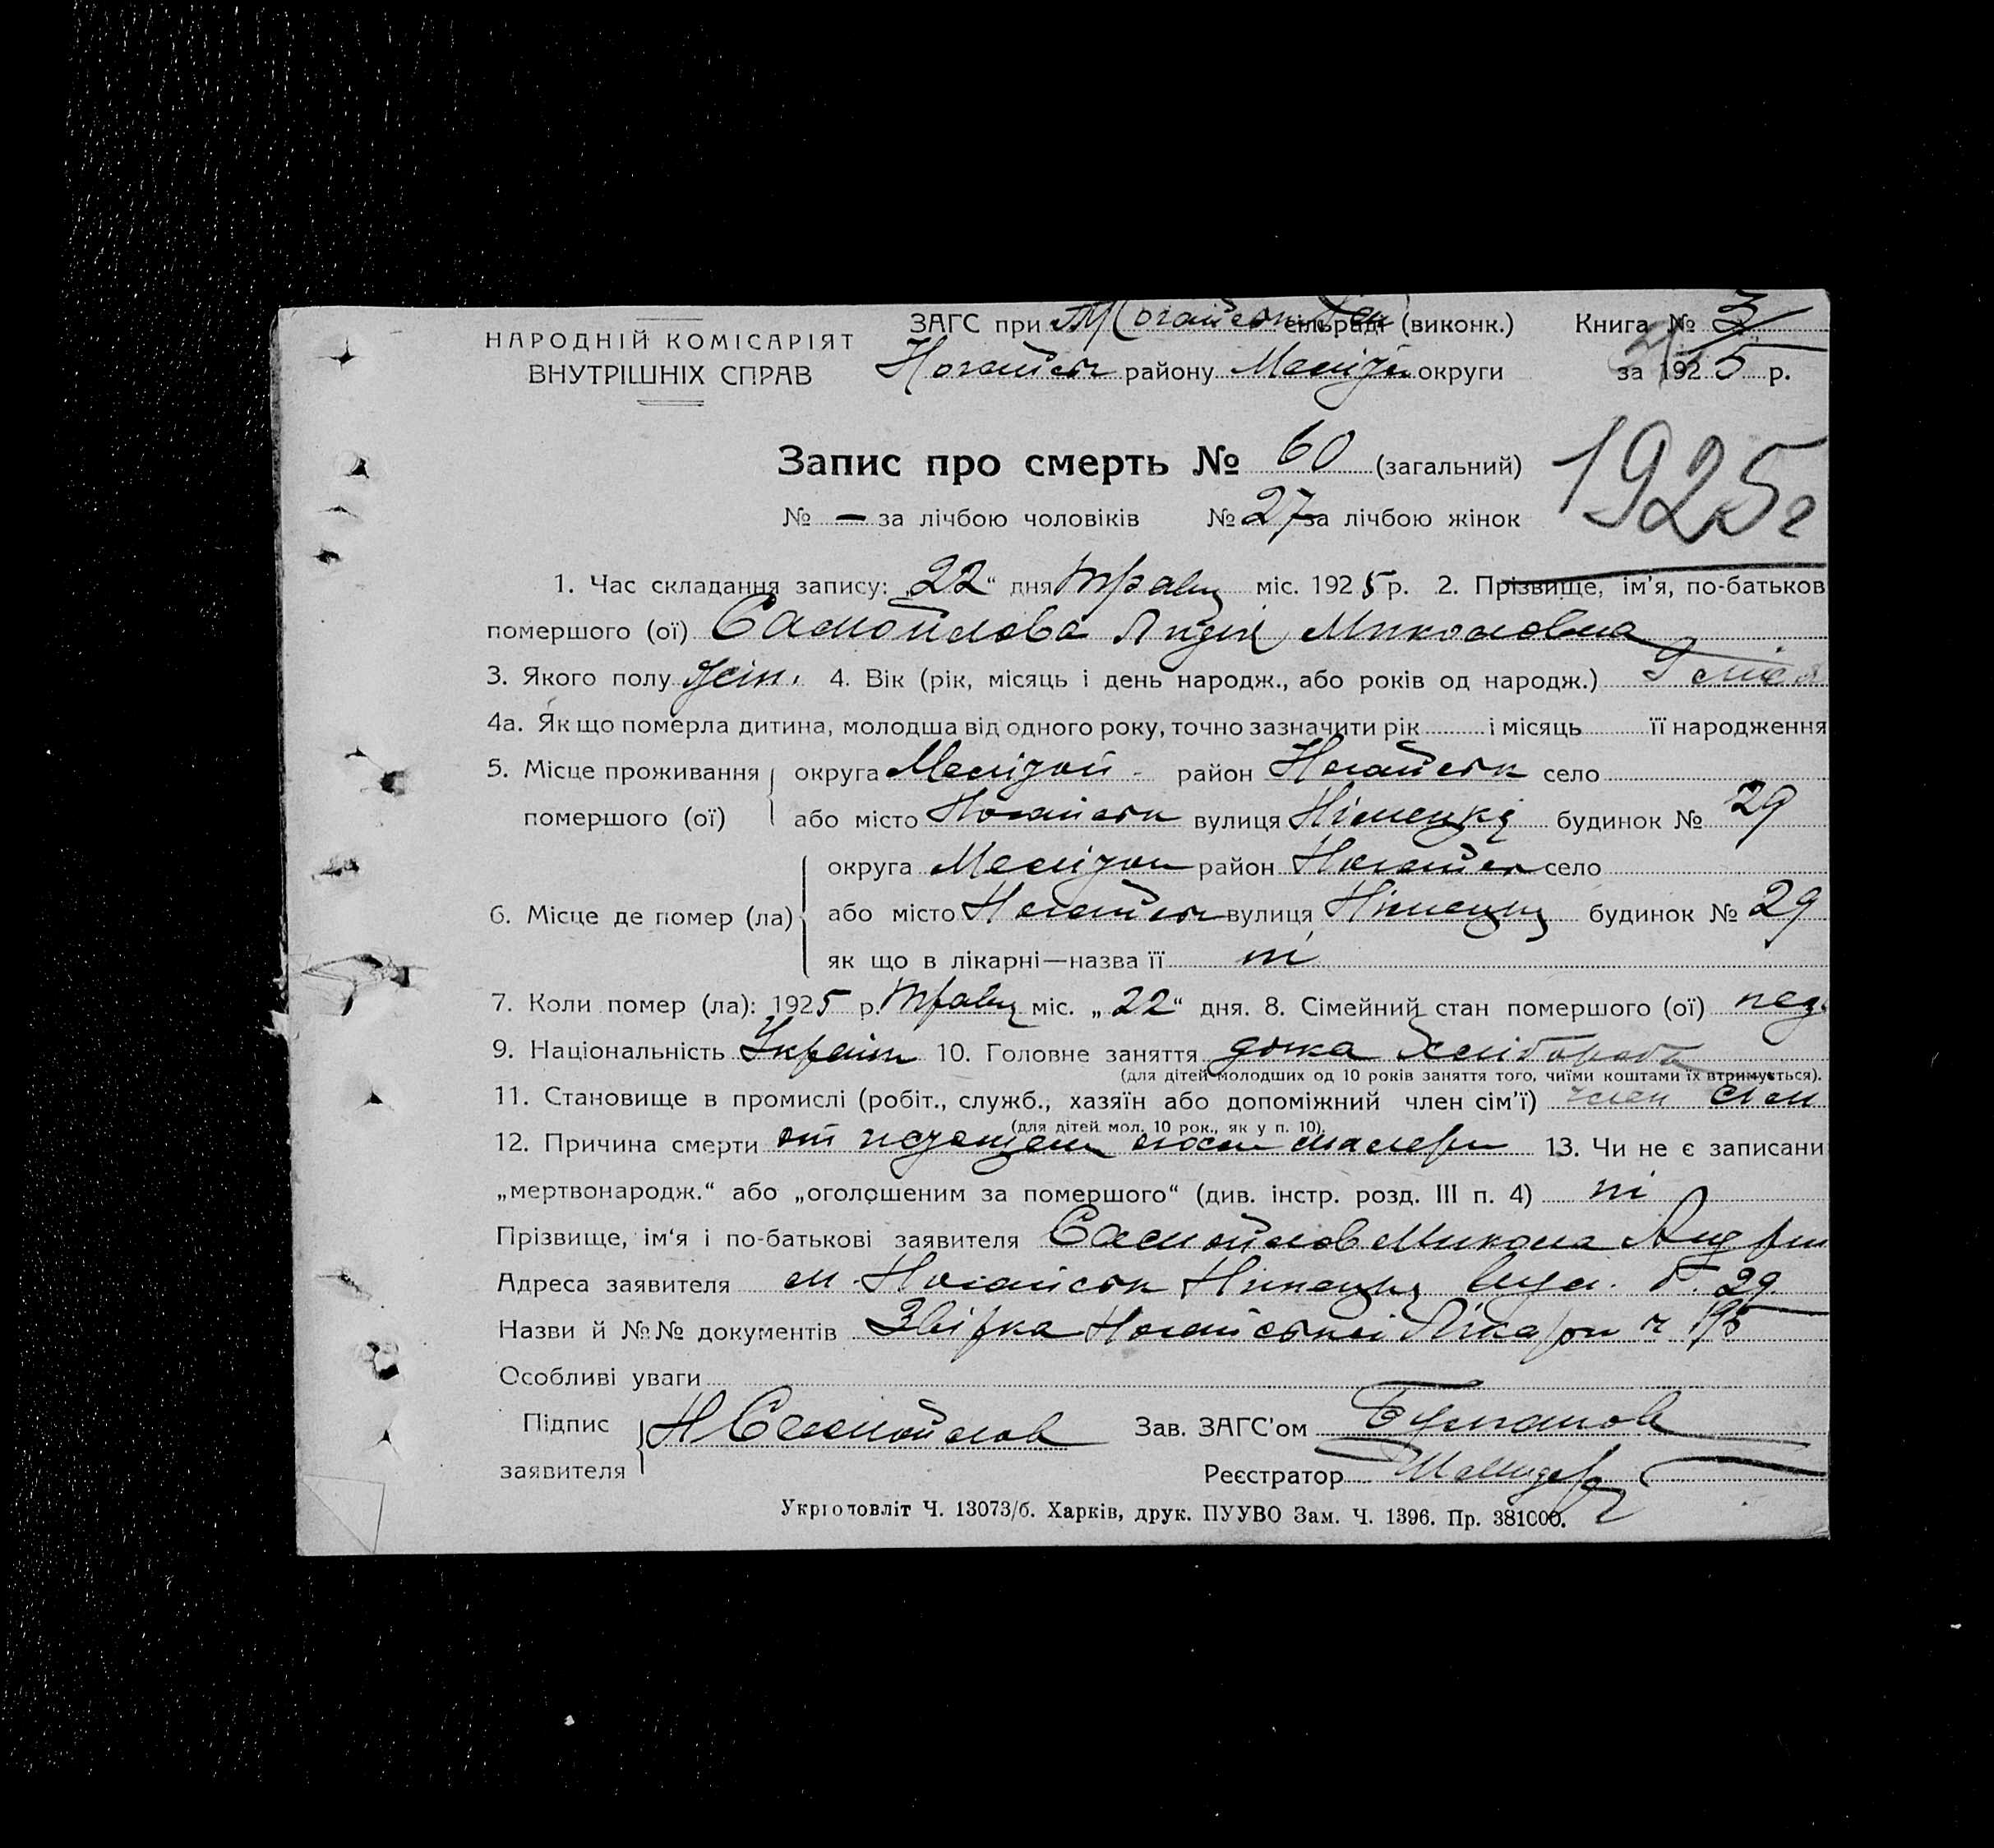 НАРОДНІЙ КОМІСАРІЯТ
ВНУТРІШНІХ СПРАВ
ЗАГС при сільраді (виконк.)
Ногайськ району Меліт округи
Книга № 3
за 1925 р.
Запис про смерть № 60 (загальний)
1925 г
№ — за лічбою чоловіків № 27 за лічбою жінок
1. Час складання запису: „22“ дня Травня міс. 1925 р. 2. Прізвище, ім'я, по-батьков
помершого (ої) Самойлова Лидія Миколовна
3. Якого полу жін. 4. Вік (рік, місяць і день народж., або років од народж.)
4а. Як що померла дитина, молодша від одного року, точно зазначити рік і місяць її народження
5. Місце проживання округа район Ногайськ село
помершого (ої) або місто Ногайськ вулиця Німецька будинок № 29
округа район Ногайськ село
6. Місце де помер (ла) або місто Ногайськ вулиця Німецька будинок № 29
як що в лікарні—назва її ні
7. Коли помер (ла): 1925 р. Травня міс. „22“ дня. 8. Сімейний стан помершого (ої)
9. Національність Україн 10. Головне заняття дочка хлібороба
(для дітей молодших од 10 років заняття того, чиїми коштами їх втримується).
11. Становище в промислі (робіт., служб., хазяїн або допоміжний член сім'ї) член сім
(для дітей мол. 10 рок., як у п. 10).
12. Причина смерти от 13. Чи не є записани
„мертвонародж.“ або „оголошеним за помершого“ (див. інстр. розд. III п. 4) ні
Прізвище, ім'я і по-батькові заявителя Самойлов Микола Андри
Адреса заявителя м. Ногайськ Німецька вул. б. 29
Назви й №№ документів Ногайської Лікарні ч 195
Особливі уваги
Підпис Н Самойлов Зав. ЗАГС'ом
заявителя Реєстратор
Укрголовліт Ч. 13073/б. Харків, друк. ПУУВО Зам. Ч. 1396. Пр. 381000.